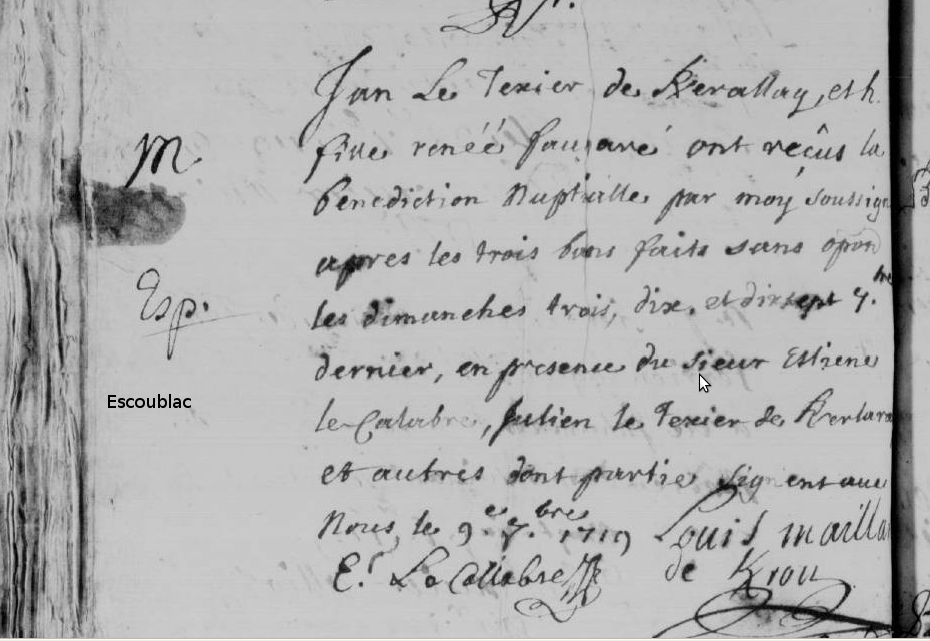 Jan Le Texier de Kerallay, et h.
M
fille renée ont reçus la
bénédiction Nuptialle par moy soussig
apres les trois bans faits sans opon
Esp.
les dimanches trois, dix, et dixsept 7.bre
dernier, en presence du sieur Estiene
Escoublac
le Calabre, Julien le Texier de
et autres dont partie signent avec
Nous, le 9.e 7.bre 1719 Louis maillar
E.t Le Callabre de Krou